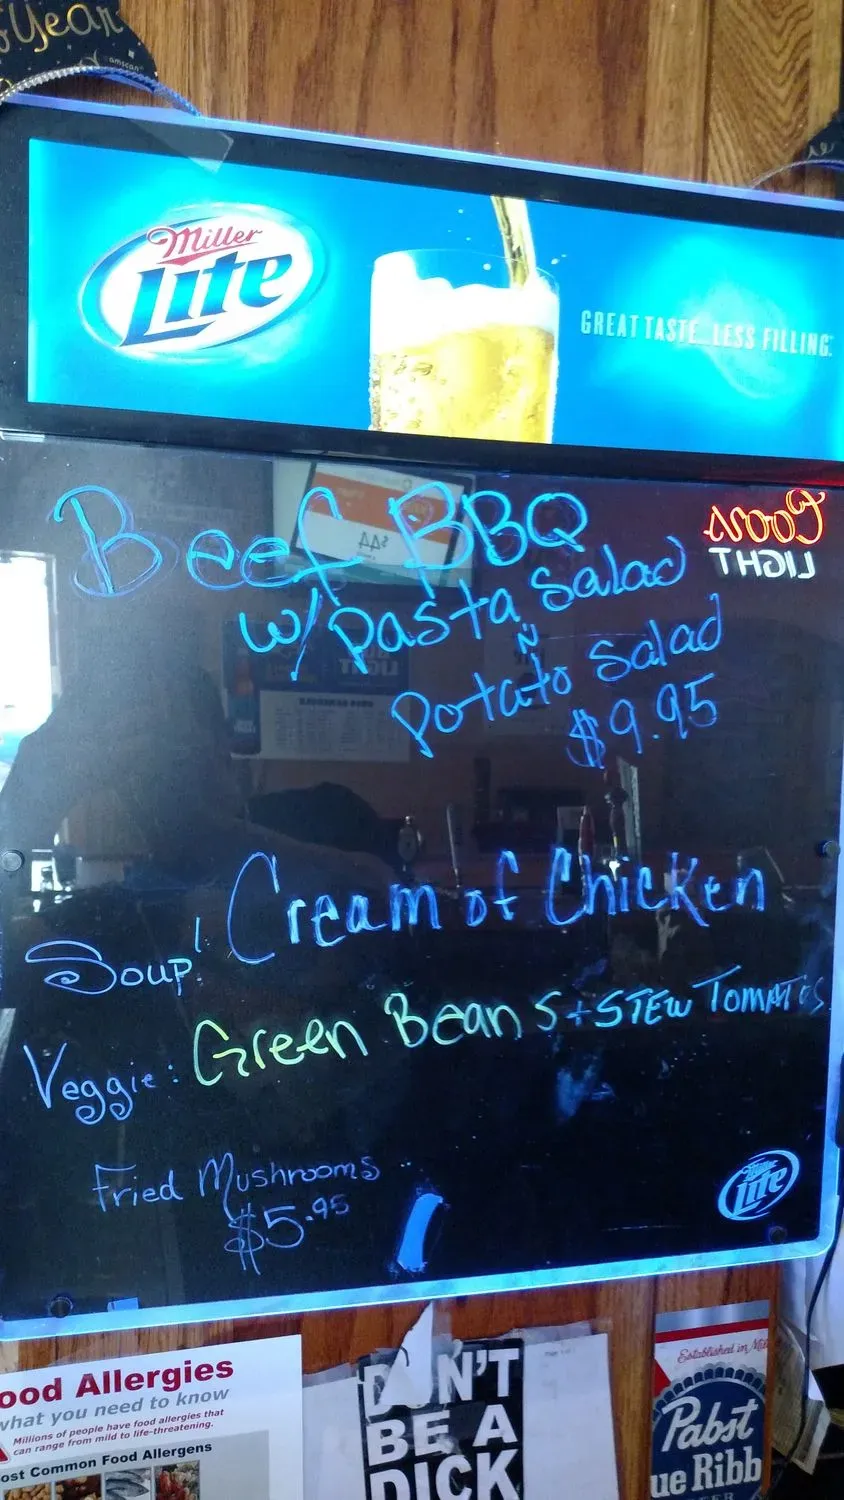 Year
amscan
Miller
Lite
GREAT TASTE...LESS FILLING.
Beef BBQ
w/ pasta salad
N
potato salad
$9.95
Coors
LIGHT
$44
Soup! Cream of Chicken
Veggie: Green Beans + STEW TOMATOES
Fried Mushrooms
$5.95
Miller
Lite
ood Allergies
what you need to know
Millions of people have food allergies that
can range from mild to life-threatening.
ost Common Food Allergens
DON'T
BE A
DICK
Established in Mil
Pabst
ue Ribb